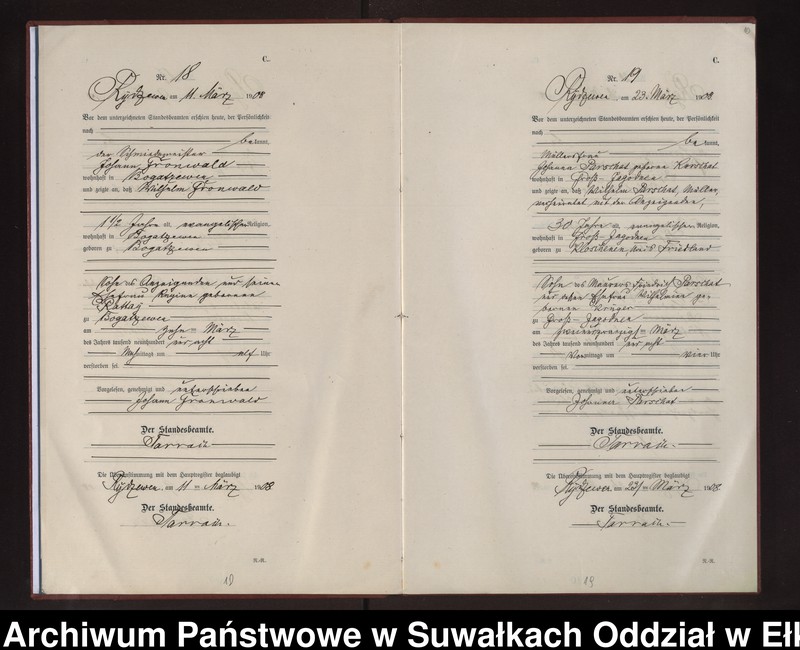 C.
Nr. 18
Rydzewen am 11. März 1908
Vor dem unterzeichneten Standesbeamten erschien heute, der Persönlichkeit
nach
bekannt,
der Schmiedemeister
Johann Gronwald
wohnhaft in Bogatzewen
und zeigte an, daß Wilhelm Gronwald
1 1/2 Jahre alt, evangelischer Religion,
wohnhaft in Bogatzewen
geboren zu Bogatzewen
Sohn des Anzeigenden und seiner
Ehefrau Regine geborenen
zu Bogatzewen
am zehn März
des Jahres tausend neunhundert und acht
Nachmittags um elf Uhr
verstorben sei.
Vorgelesen, genehmigt und unterschrieben
Johann Gronwald
Der Standesbeamte.
Die Übereinstimmung mit dem Hauptregister beglaubigt
Rydzewen, am 11 ten März 1908
Der Standesbeamte.
R.-R.
18
C.
Nr. 19
Rydzewen, am 23. März 1908
Vor dem unterzeichneten Standesbeamten erschien heute, der Persönlichkeit
nach
bekannt,
Müllersfrau
Johanna geborene
wohnhaft in Groß-Jagodnen
und zeigte an, daß Wilhelm Müller,
verheiratet mit der Anzeigenden,
30 Jahre alt, evangelischer Religion,
wohnhaft in Groß-Jagodnen
geboren zu Kloschenen, Kreis Friedland
Sohn des Maurers Friedrich
und dessen Ehefrau Wilhelmine ge-
borenen Krüger
zu Groß-Jagodnen
am zweiundzwanzigsten März
des Jahres tausend neunhundert und acht
Vormittags um vier Uhr
verstorben sei.
Vorgelesen, genehmigt und unterschrieben
Johanna
Der Standesbeamte.
Die Übereinstimmung mit dem Hauptregister beglaubigt
Rydzewen am 23 ten März 1908
Der Standesbeamte.
R.-R.
19
Archiwum Państwowe w Suwałkach Oddział w Ełk